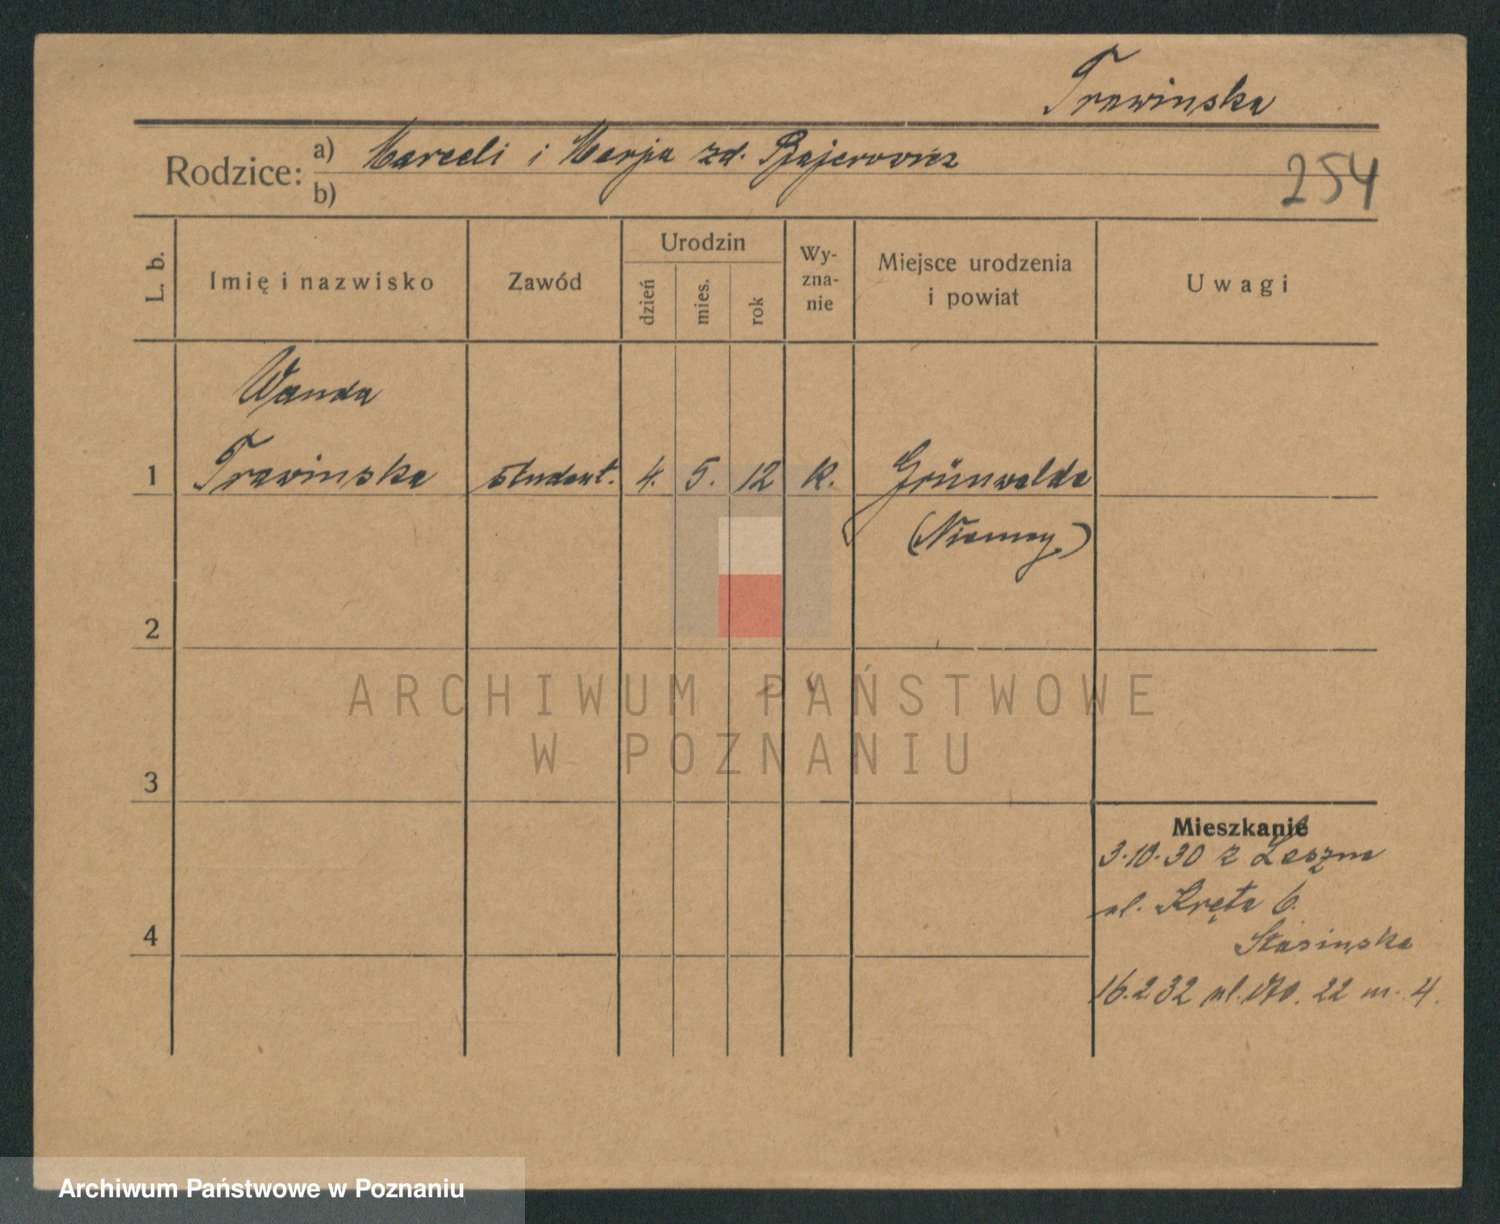 Trawinska
Rodzice: a) Marceli i Marja zd. Bajerowicz
b)
254
L. b.
Imię i nazwisko
Zawód
Urodzin
dzień
mies.
rok
Wy-
zna-
nie
Miejsce urodzenia
i powiat
Uwagi
Wanda
1 Trawinska student. 4. 5. 12 k. Grünwalde
(Niemcy)
2
3
4
ARCHIWUM PAŃSTWOWE
W POZNANIU
Mieszkanie
3.10.30 z Leszna
ul. Kręta 6.
Stasinska
16.2.32 ul. 22 m. 4.
Archiwum Państwowe w Poznaniu